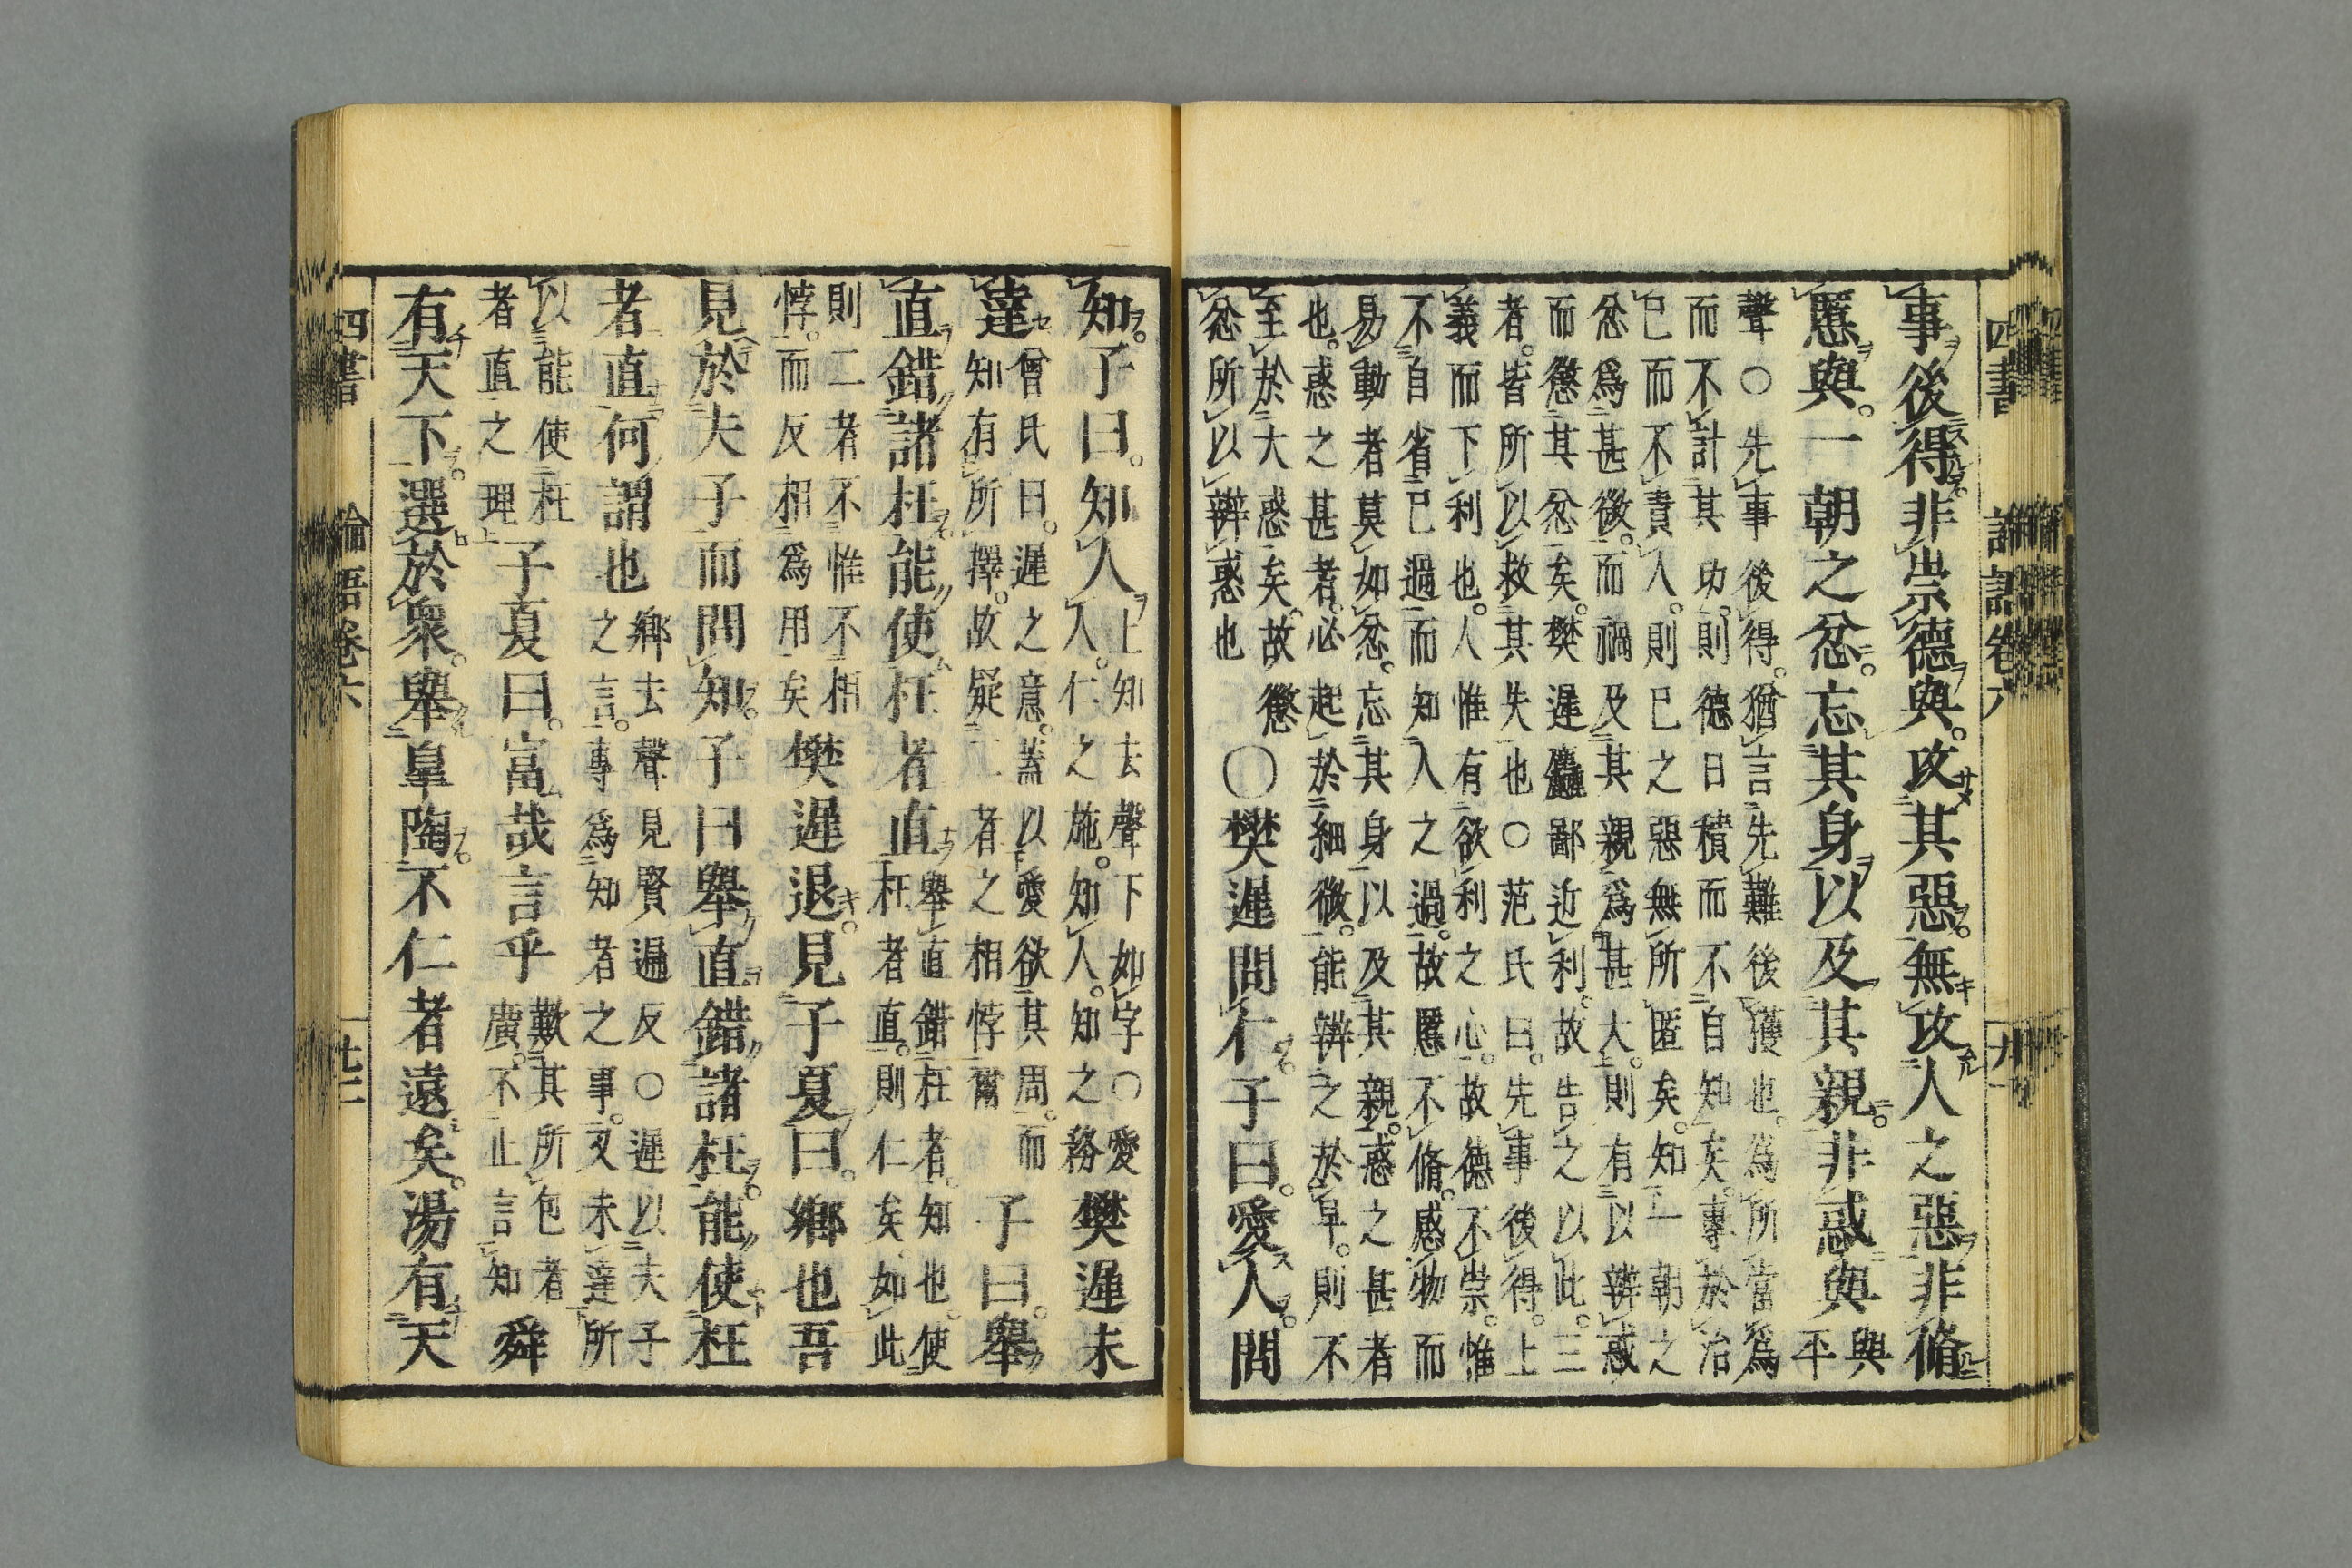 四書 論語卷六
事後得非崇德與。攻其惡。無攻人之惡非脩
慝與。一朝之忿。忘其身以及其親。非惑與 與平
聲○先事後得。猶言先難後獲也。爲所當爲
而不計其功。則德日積而不自知矣。專於治
己而不責人。則己之惡無所匿矣。知一朝之
忿爲甚微。而禍及其親爲甚大。則有以辨惑
而懲其忿矣。樊遲麤鄙近利。故告之以此。三
者。皆所以救其失也○范氏曰。先事後得。上
義而下利也。人惟有欲利之心。故德不崇。惟
不自省己過而知人之過。故慝不脩。感物而
易動者莫如忿。忘其身以及其親。惑之甚者
也。惑之甚者。必起於細微。能辨之於早。則不
至於大惑矣。故懲
忿所以辨惑也
○樊遲問仁。子曰。愛人。問
知。子曰。知人
上知去聲下如字○愛
人。仁之施。知人。知之務
樊遲未
達
曾氏曰。遲之意。蓋以愛欲其周。而
知有所擇。故疑二者之相悖爾
子曰。舉
直錯諸枉。能使枉者直
舉直錯枉者。知也。使
枉者直。則仁矣。如此
則二者不惟不相
悖。而反相爲用矣
樊遲退。見子夏曰。鄉也吾
見於夫子而問知。子曰舉直錯諸枉。能使枉
者直何謂也
鄉去聲見賢遍反○遲以夫子
之言。專爲知者之事。又未達所
以能使枉
者直之理
子夏曰。富哉言乎
歎其所包者
廣。不止言知
舜
有天下。選於衆。舉皐陶。不仁者遠矣。湯有天
四書 論語卷六 廿二